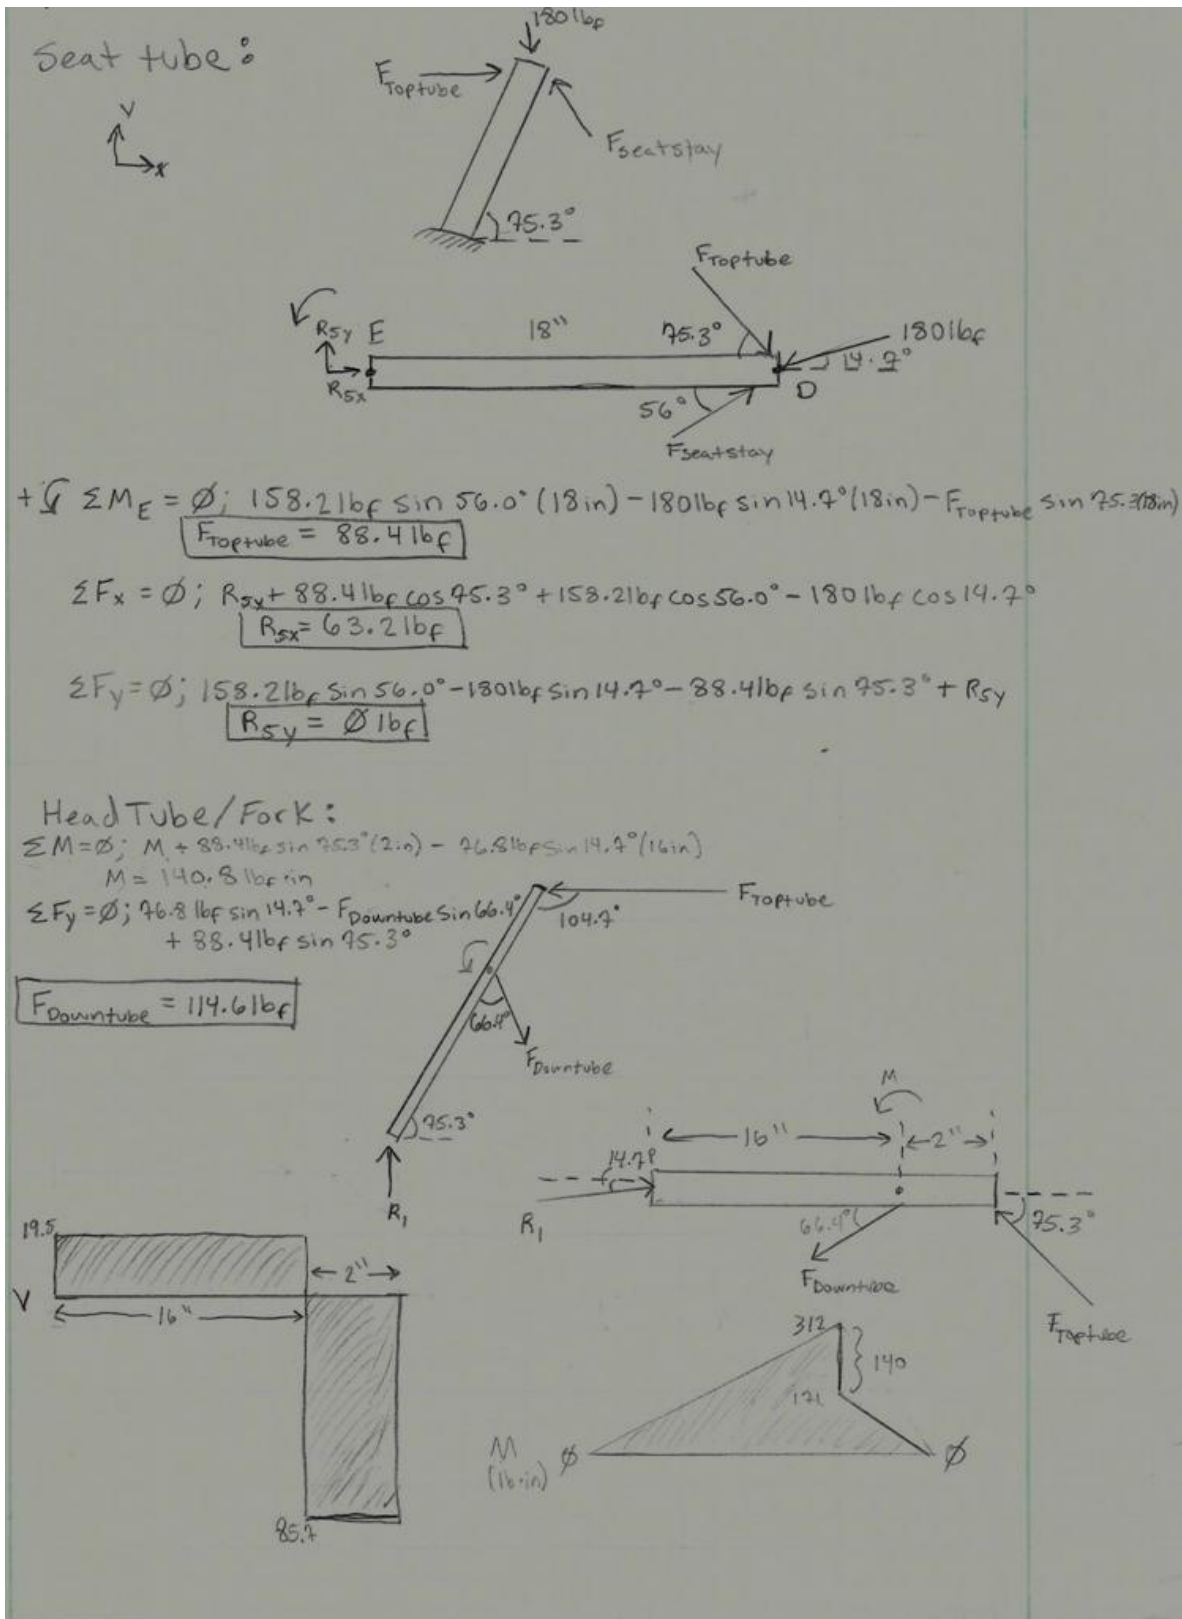 180 lbf
Seat tube:
F Toptube
y
x
F seatstay
75.3°
F Toptube
R5y E 18" 75.3° 180 lbf
14.7°
R5x 56° D
F seatstay
+ ΣM_E = Ø; 158.2 lbf sin 56.0° (18in) - 180 lbf sin 14.7° (18in) - F Toptube sin 75.3(18in)
F Toptube = 88.4 lbf
ΣFx = Ø; R5x + 88.4 lbf cos 75.3° + 158.2 lbf cos 56.0° - 180 lbf cos 14.7°
R5x = 63.2 lbf
ΣFy = Ø; 158.2 lbf sin 56.0° - 180 lbf sin 14.7° - 88.4 lbf sin 75.3° + R5y
R5y = Ø lbf
Head Tube/Fork:
ΣM = Ø; M + 88.4 lbf sin 75.3° (2in) - 76.8 lbf sin 14.7° (16in)
M = 140.8 lbf·in
ΣFy = Ø; 76.8 lbf sin 14.7° - F Downtube sin 66.4°
+ 88.4 lbf sin 75.3°
F Downtube = 114.6 lbf
F Toptube
104.7°
66.4°
F Downtube
75.3°
R1
M
16" 2"
14.7°
R1
66.4°
75.3°
F Downtube
F Toptube
19.5
V
16"
2"
85.7
312
140
171
M
(lb·in)
Ø
Ø